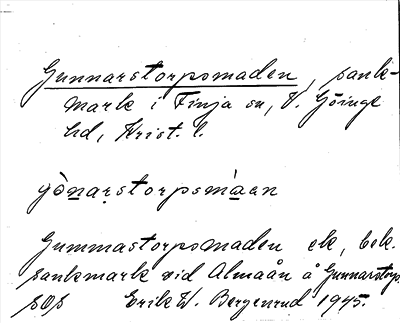 Gunnarstorpsmaden, sank-
mark i Finja sn, V. Göinge
hd, Krist. l.
gònarstorpsmáen
Gummastorpsmaden ek, bek.
sankmark vid Almaån å Gunnarstorps
Erik W. Bergenrud 1945.